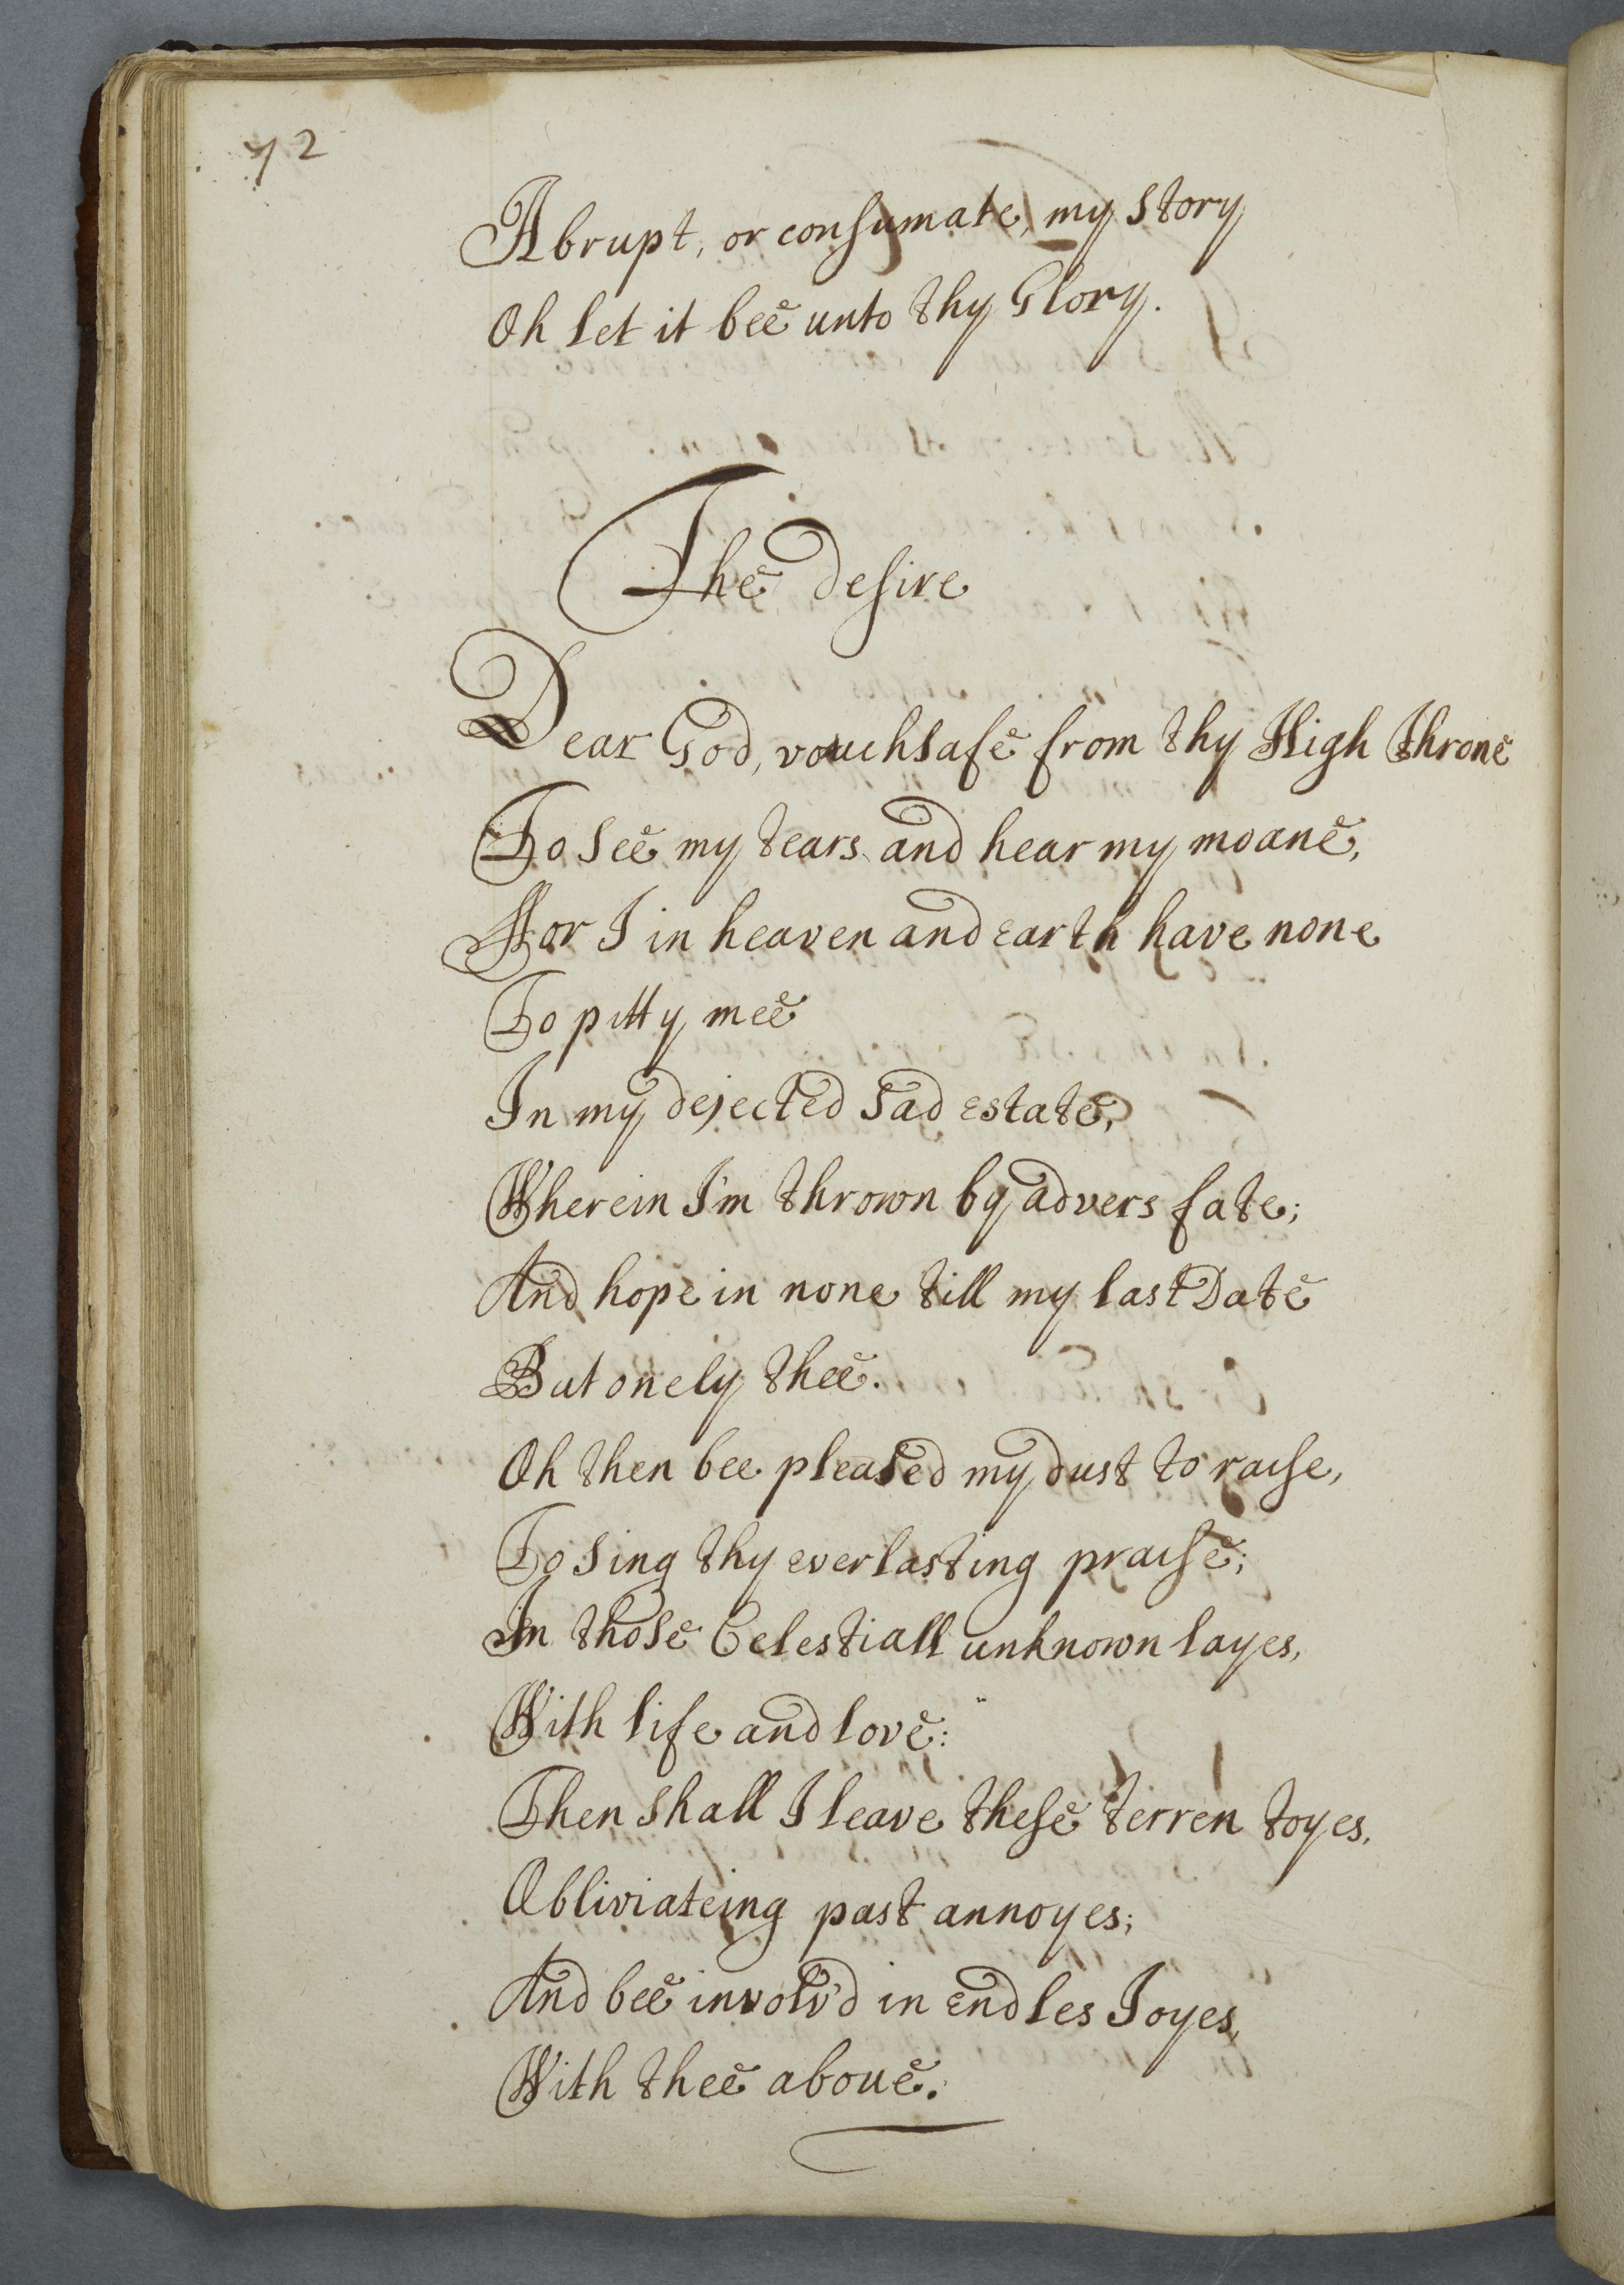 72
Abrupt, or consumate, my story
Oh let it bee unto thy Glory.
The desire
Dear God, vouchsafe from thy High Throne
To see my tears and hear my moane,
For I in heaven and earth have none
To pitty mee
In my dejected sad estate,
Wherein I'm thrown by advers fate;
And hope in none till my last Date
But onely thee.
Oh then bee pleased my dust to raise,
To sing thy everlasting praise;
In those Celestiall unknown layes,
With life and love:
Then shall I leave these terren toyes,
Obliviateing past annoyes;
And bee involv'd in endles Joyes,
With thee aboue.